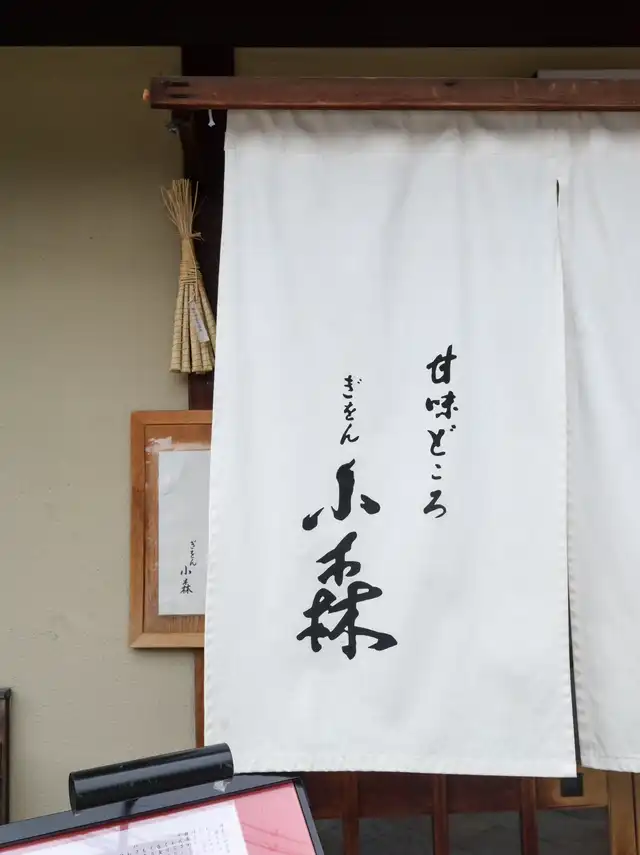 甘味どころ
ぎをん
小森
ぎをん
小森